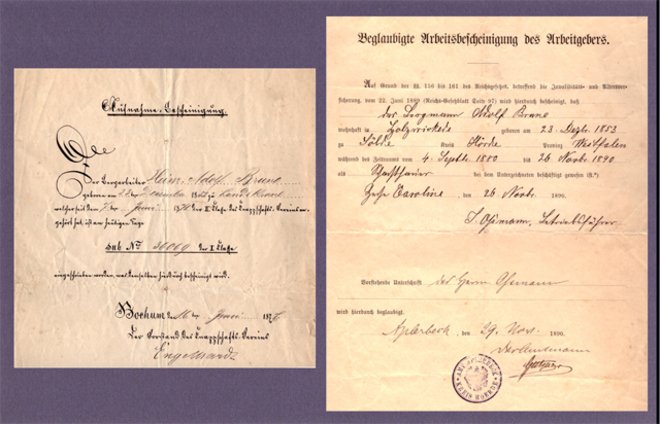 Aufnahme-Bescheinigung.
Der Bergarbeiter Heinr. Adolf Brune
geboren am
welcher seit dem der II Classe des Knappschafts-Vereins an-
gehört hat, ist am heutigen Tage
sub No 36069 der I Classe
eingeschrieben worden, was demselben hierdurch bescheinigt wird.
Bochum, den 16 ten Juni
Der Vorstand des Knappschafts-Vereins
Beglaubigte Arbeitsbescheinigung des Arbeitgebers.
Auf Grund der §§. 156 bis 161 des Reichsgesetzes, betreffend die Invaliditäts- und Alters-
versicherung, vom 22. Juni 1889 (Reichs-Gesetzblatt Seite 97) wird hierdurch bescheinigt, daß
der Bergmann Adolf Brune
wohnhaft in Holzwickede geboren am 23. Dezbr. 1853
zu Sölde Kreis Hörde Provinz Westfalen
während des Zeitraums vom 4. Septbr. 1880 bis 26 Novbr. 1890
als bei dem Unterzeichneten beschäftigt gewesen ist.
Zeche Caroline, den 26 Novbr. 1890.
Betriebsführer
Vorstehende Unterschrift des Herrn
wird hierdurch beglaubigt.
Aplerbeck, den 29. Nov. 1890.
Der Amtmann